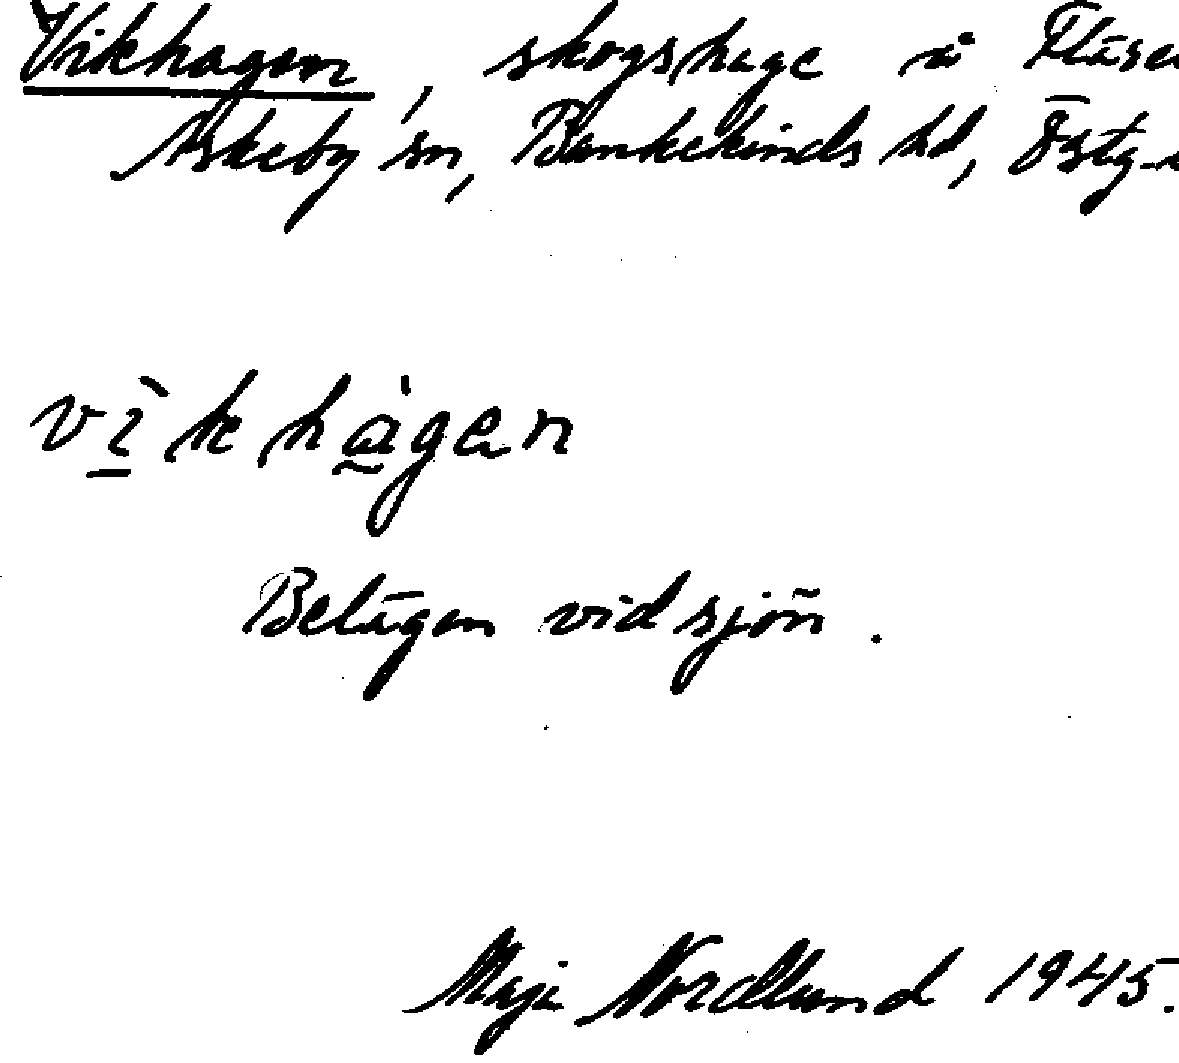 Vikhagen, skogshage å Fläse
Askeby sn, Bankekinds hd, Östg.
vìkhàgen
Belägen vid sjön.
Maja Nordlund 1945.